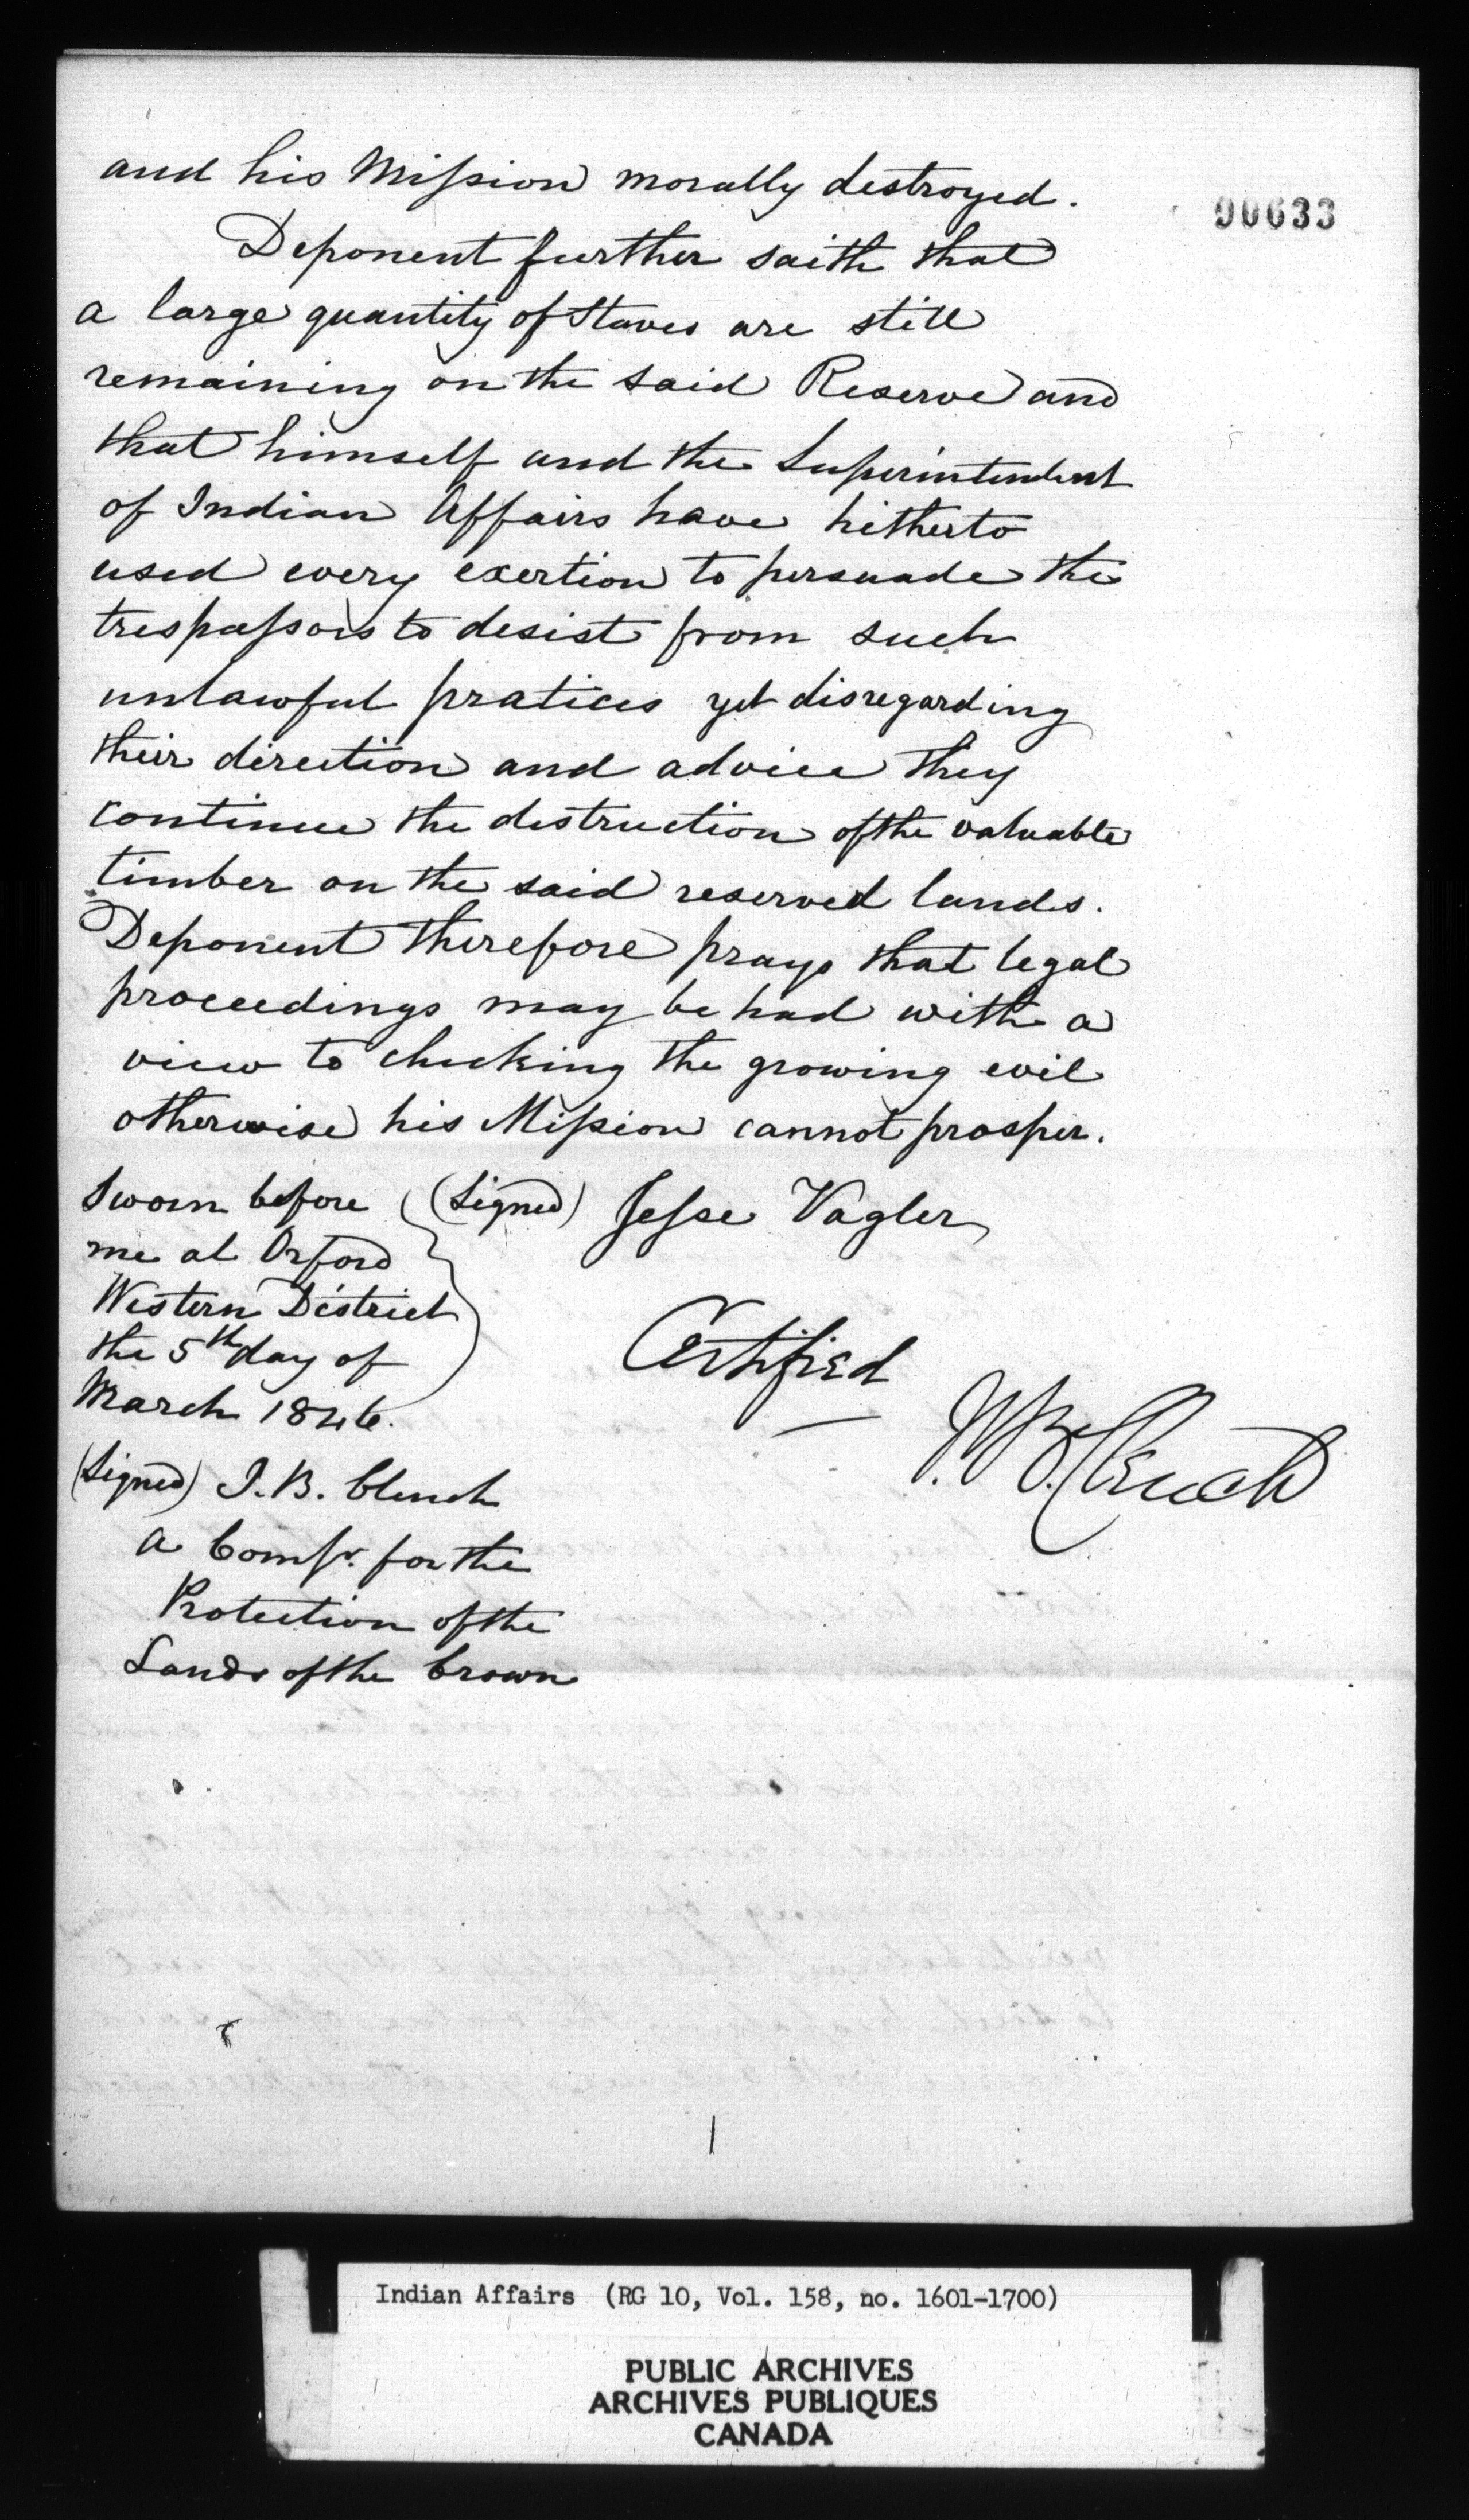 and his Mission morally destroyed.
90633
Deponent further saith that
a large quantity of Staves are still
remaining on the said Reserve and
that himself and the Superintendent
of Indian Affairs have hitherto
used every exertion to persuade the
trespassors to desist from such
unlawful pratices yet disregarding
their direction and advice they
continue the destruction of the valuable
timber on the said reserved lands.
Deponent therefore prays that legal
proceedings may be had with a
view to checking the growing evil
otherwise his Mission cannot prosper.
Sworn before (Signed) Jesse Vagler
me at Orford
Western District
the 5th day of
March 1846.
Certified
J. B. Clench
(Signed) J. B. Clench
a Comsr. for the
Protection of the
Lands of the Crown
Indian Affairs (RG 10, Vol. 158, no. 1601-1700)
PUBLIC ARCHIVES
ARCHIVES PUBLIQUES
CANADA